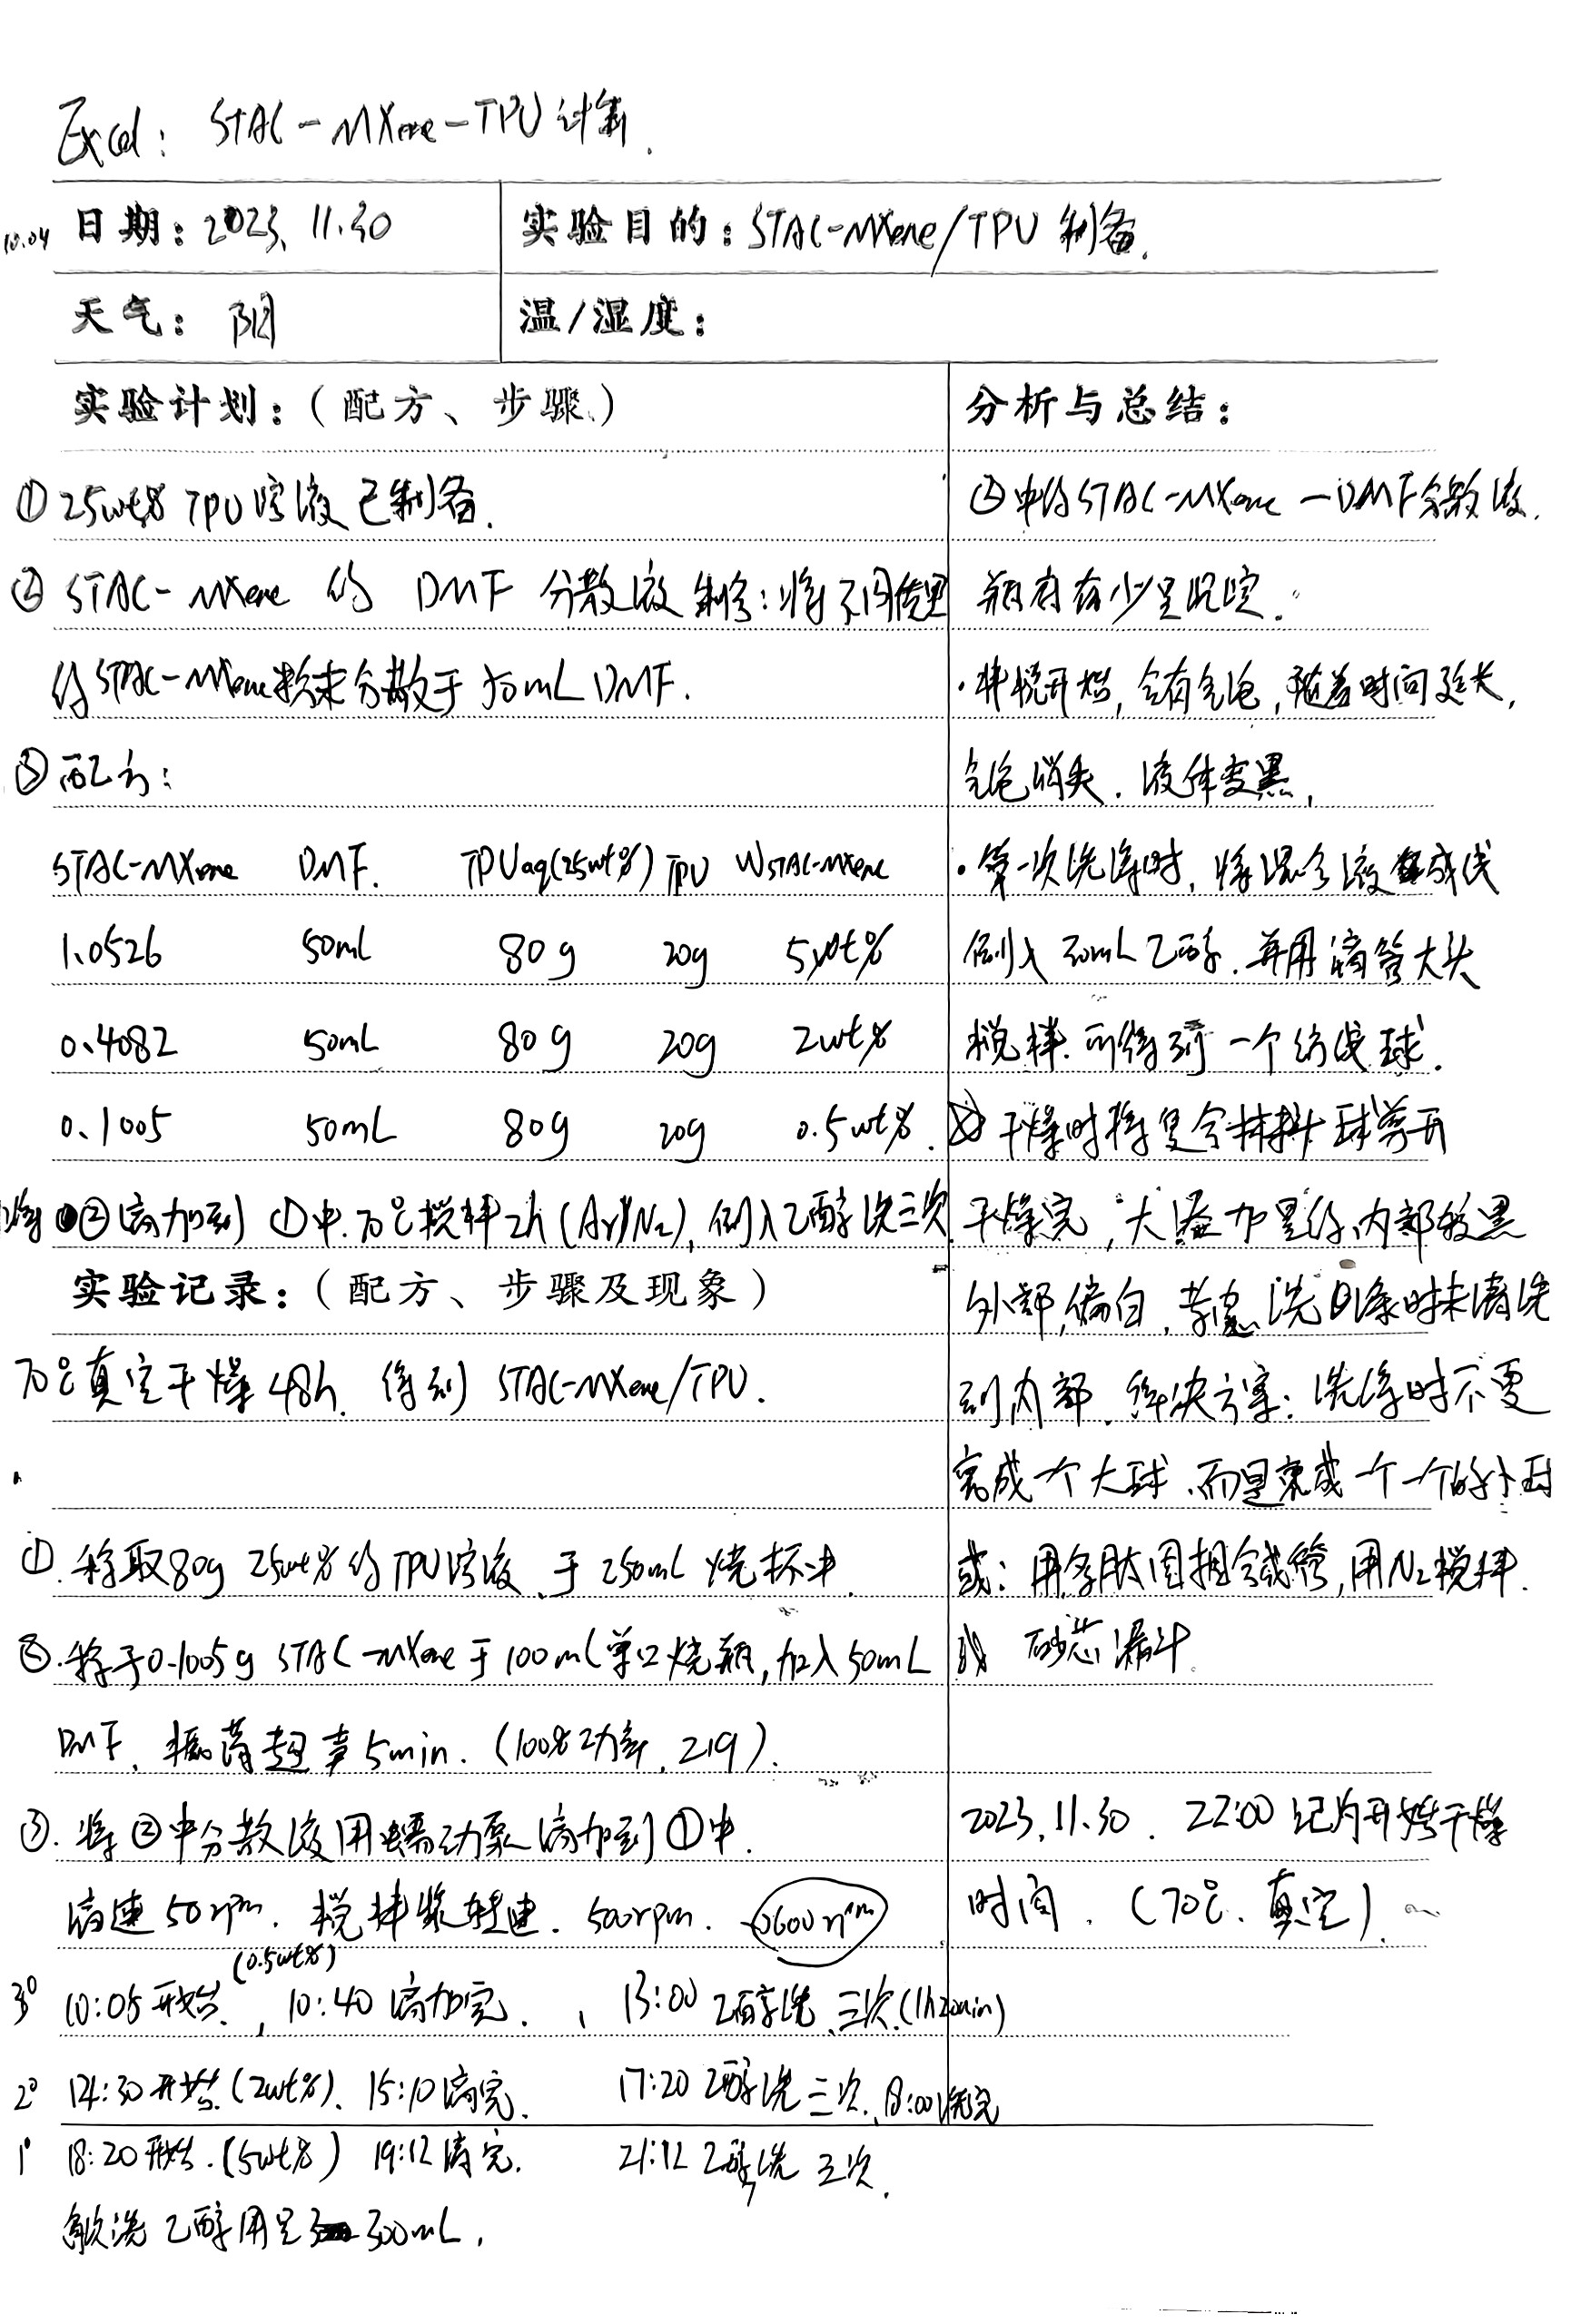 Excel: STAC-MXene-TPU计算.
10.04 日期: 2023.11.30 实验目的: STAC-MXene/TPU 制备.
天气: 阴 温/湿度:
实验计划:(配方、步骤、)
① 25wt% TPU溶液已制备.
② STAC-MXene 的 DMF 分散液制备: 将不同质量
的STAC-MXene粉末分散于50mL DMF.
③ 配方:
STAC-MXene DMF. TPUaq(25wt%) TPU WSTAC-MXene
1.0526 50mL 80g 20g 5wt%
0.4082 50mL 80g 20g 2wt%
0.1005 50mL 80g 20g 0.5wt%.
将②滴加到①中.70℃搅拌2h(Ar/N2),倒入乙醇洗三次.
实验记录:(配方、步骤及现象)
70℃真空干燥48h. 得到 STAC-MXene/TPU.
①. 称取80g 25wt%的TPU溶液.于250mL烧杯中.
②. 称于0.1005g STAC-MXene于100mL单口烧瓶,加入50mL
DMF, 振荡超声5min. (100%功率, 219).
③. 将②中分散液用蠕动泵滴加到①中.
滴速50rpm. 搅拌桨转速. 500rpm. →600rpm
(0.5wt%)
3° 10:05开始, 10:40滴加完. , 13:00乙醇洗三次.(1h20min)
2° 14:30开始(2wt%). 15:10滴完. 17:20乙醇洗三次.18:00洗完
1° 18:20开始.(5wt%) 19:12滴完. 21:12乙醇洗三次.
每次洗乙醇用量 300mL.
分析与总结:
②中的STAC-MXene-DMF分散液.
瓶底有少量沉淀.
·搅拌开始,会有气泡,随着时间延长,
气泡消失.液体变黑,
·第一次洗涤时,将混合液成线
倒入300mL乙醇.并用滴管大头
搅拌.可得到一个纺线球.
干燥时将复合材料球剪开
干燥完,大添加量的内部较黑
外部偏白,考虑洗涤时未清洗
到内部.解决方案:洗涤时不要
完成一个大球.而是束成一个一个的小球
或:用 ,用N2搅拌.
或 砂芯漏斗.
2023.11.30. 22:00记为开始干燥
时间.(70℃.真空).